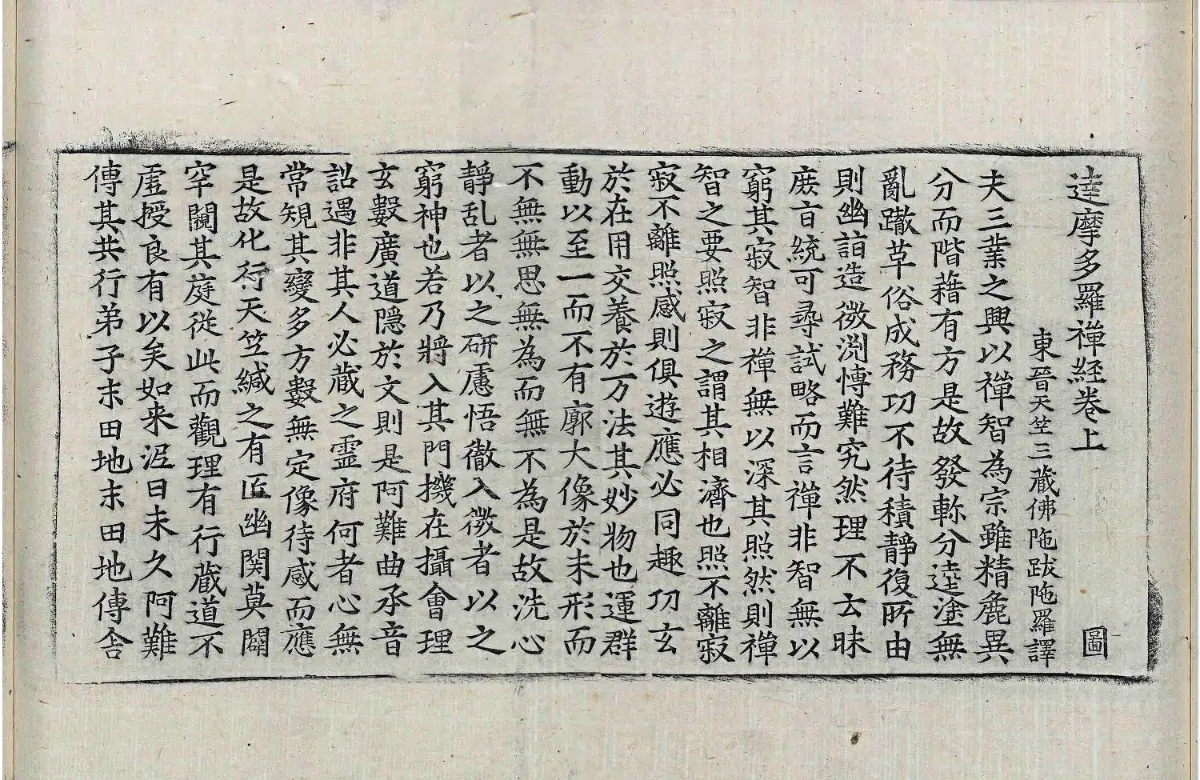 達摩多羅禪經卷上 圖
東晉天竺三藏佛陁跋陁羅譯
夫三業之興以禪智為宗雖精麁異
分而階藉有方是故發軫分逵塗無
亂轍革俗成務功不待積靜復所由
則幽詣造微渕愽難究然理不云昧
庻旨統可尋試略而言禪非智無以
窮其寂智非禪無以深其照然則禪
智之要照寂之謂其相濟也照不離寂
寂不離照感則俱遊應必同趣功玄
於在用交養於万法其妙物也運群
動以至一而不有廓大像於未形而
不無無思無為而無不為是故洗心
靜乱者以之研慮悟徹入微者以之
窮神也若乃將入其門機在攝會理
玄數廣道隱於文則是阿難曲承音
詔遇非其人必藏之靈府何者心無
常規其變多方數無定像待感而應
是故化行天竺緘之有匠幽関莫闢
罕闚其庭從此而觀理有行藏道不
虛授良有以矣如来泥日未久阿難
傳其共行弟子末田地末田地傳舍